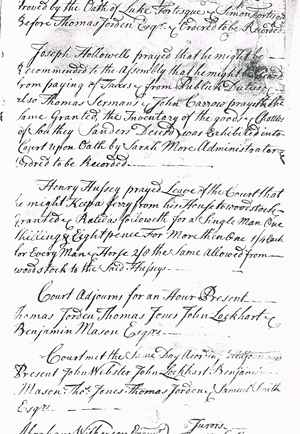 Proved by the Oath of Luke Fortesque & Simon Fortesque
Before Thomas Jorden Esqr. & Ordered to be Recorded
Joseph Hollowell prayed that he might be
Recommended to the Assembly that he might be
from paying of Taxes & from Publick Duties
also Thomas Jermans & John Carrow prayeth the
same Granted, the Inventory of the goods & Chattles
of Southey Sanders Decd was Exhibited into
Court upon Oath by Sarah More Administrator
Ordred to be Recorded
Henry Hussey prayed Leave of the Court that
he might Keep a ferry from his House to woodstock
Granted & as followeth for a Single Man One
Shilling & Eight pence For More then One 1/4 Each
for Every Man & Horse 2/8 the Same Allowed from
woodstock to the Said Husseys
Court Adjourns for an Hour Present
Thomas Jorden Thomas Jones John Lockhart &
Benjamin Mason Esqrs
Court met the Same Day
Present John Webster John Lockhart Benjamin
Mason Thos. Jones Thomas Jorden & Samuel Smith
Esqrs
Jurors